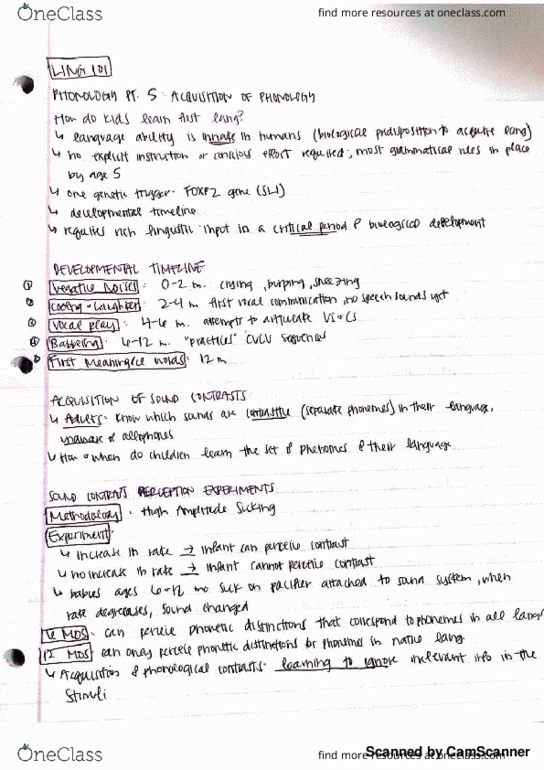 OneClass
find more resources at oneclass.com
LING 101
PHONOLOGY PT. 5: ACQUISITION OF PHONOLOGY
How do kids learn first lang?
↳ language ability is innate in humans (biological predisposition to acquire lang)
↳ no explicit instruction or concious effort required; most grammatical rules in place
by age 5
↳ one genetic trigger- FOXP2 gene (SLI)
↳ developmental timeline
↳ requires rich linguistic input in a critical period & biological development
DEVELOPMENTAL TIMELINE
① Vegative Noises: 0-2 m. crying, burping, sneezing
② Cooing + Laughter: 2-4 m first vocal communication, no speech sounds yet
③ Vocal play: 4-6 m. attempts to articulate Vs + Cs
④ Babbling: 6-12 m. "practice" CVCV sequences
⑤ First Meaningful words: 12 m
ACQUISITION OF SOUND CONTRASTS
↳ Adults- know which sounds are contrastive (separate phonemes) in their language,
unaware of allophones
↳ How + when do children learn the set of phonemes of their language
SOUND CONTRAST PERCEPTION EXPERIMENTS
Methodology: High Amplitude Sucking
Experiment:
↳ increase in rate → infant can perceive contrast
↳ no increase in rate → infant cannot perceive contrast
↳ babies ages 6-12 mo suck on pacifier attached to sound system, when
rate decreases, sound changed
6 MOS: can percieve phonetic distinctions that correspond to phonemes in all langs
12 MOS: can only percieve phonetic distinctions for phonemes in native lang
↳ Acquisition of phonological contrasts: learning to ignore irrelevant info in the
stimuli
OneClass
find more resources at oneclass.com
Scanned by CamScanner